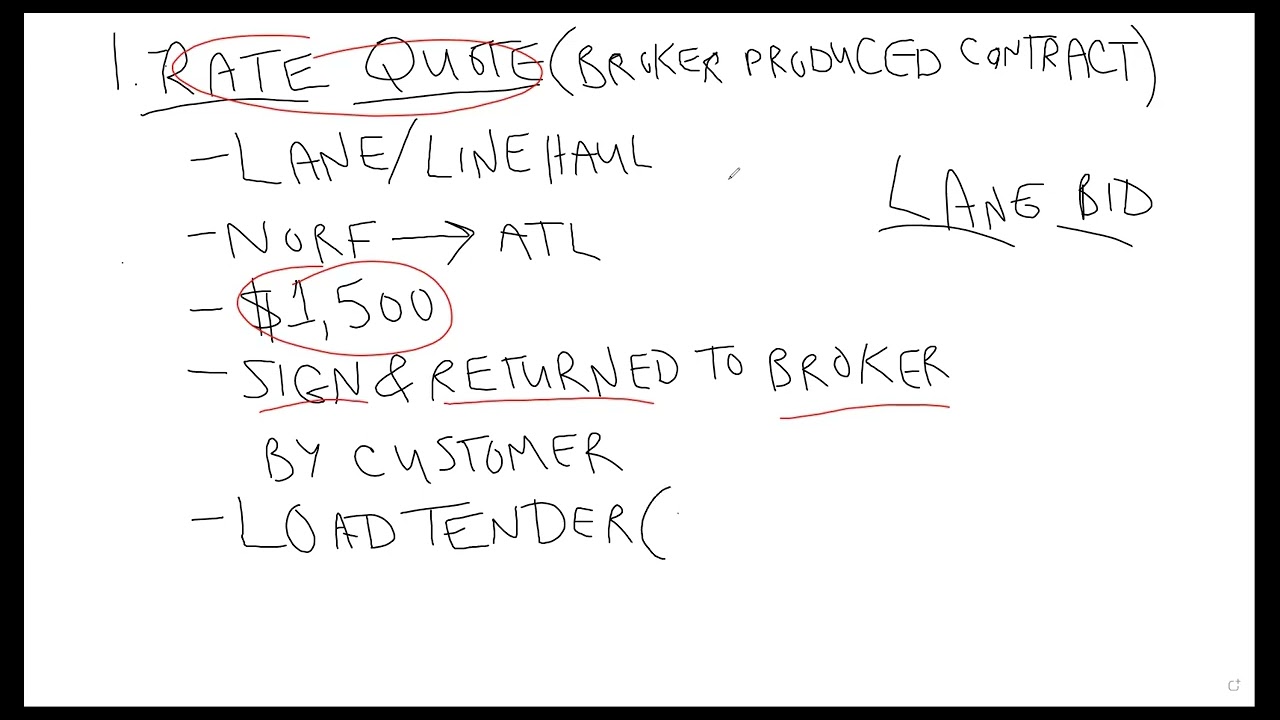 1. RATE QUOTE (BROKER PRODUCED CONTRACT)
- LANE/LINE HAUL
LANE BID
- NORF → ATL
- $1,500
- SIGN & RETURNED TO BROKER
BY CUSTOMER
- LOAD TENDER (